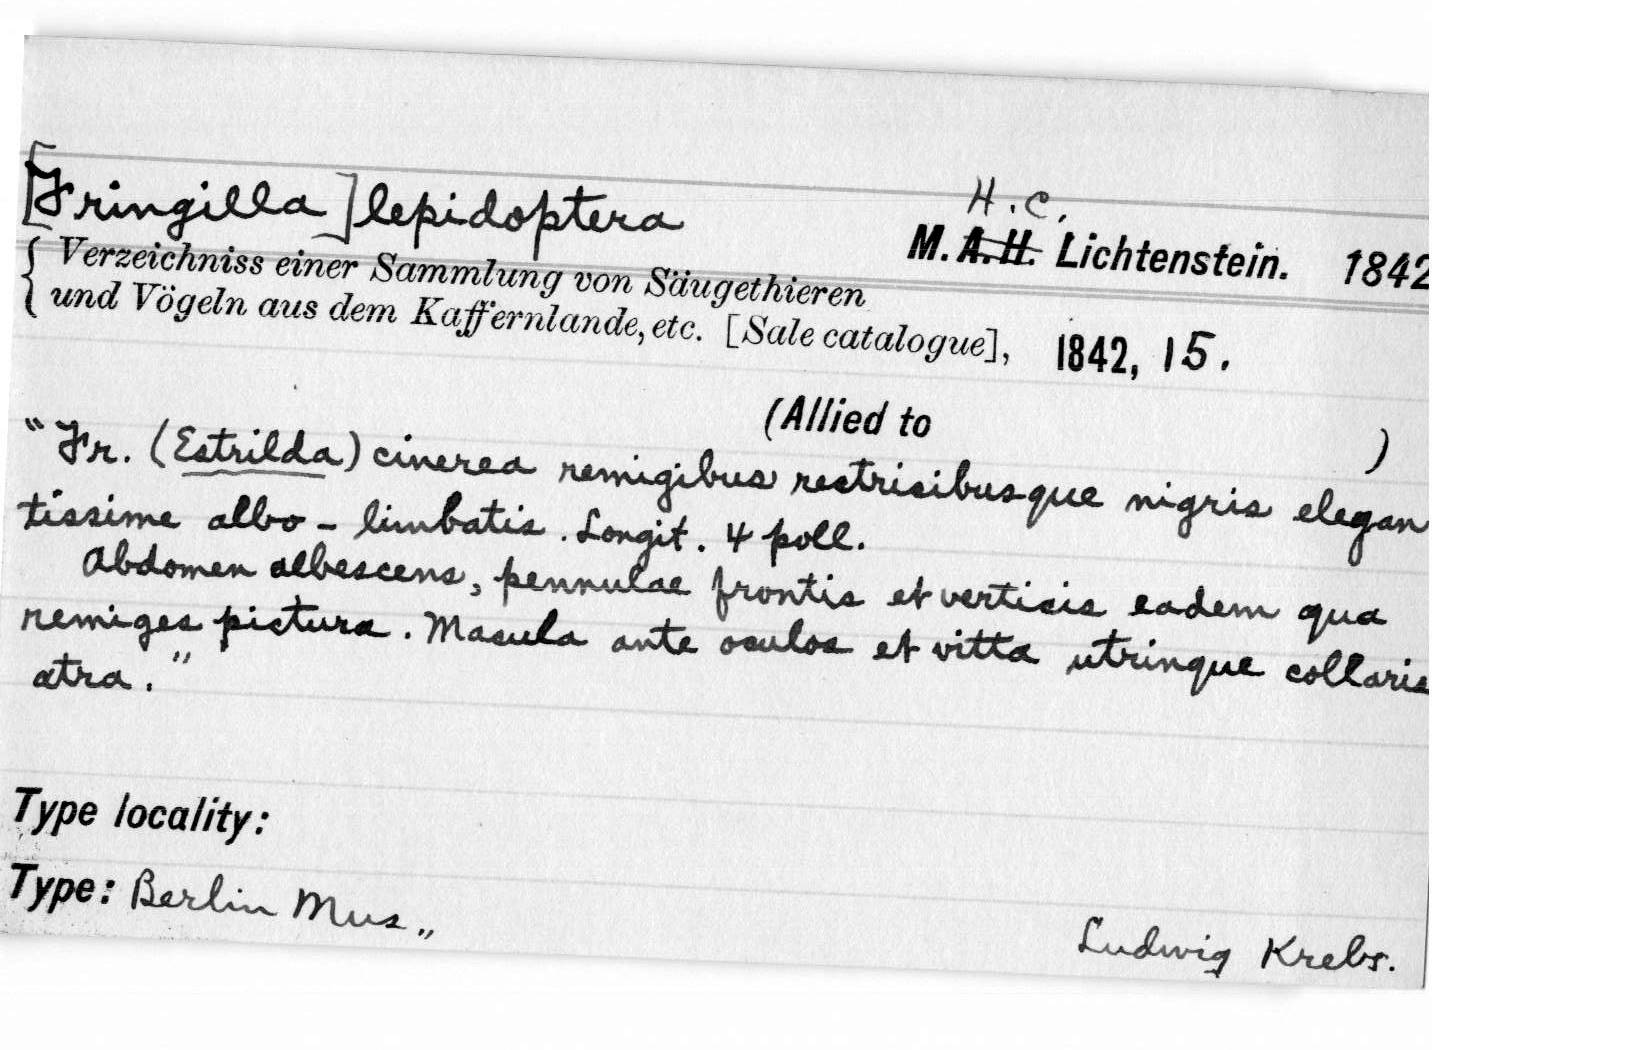 [Fringilla] lepidoptera
H. C.
M. A. H. Lichtenstein. 1842
{ Verzeichniss einer Sammlung von Säugethieren
und Vögeln aus dem Kaffernlande, etc. [Sale catalogue], 1842, 15.
(Allied to )
"Fr. (Estrilda) cinerea remigibus rectricibusque nigris elegan
tissime albo - limbatis. Longit. 4 poll.
Abdomen albescens, pennulae frontis et verticis eadem qua
remiges pictura. Macula ante oculos et vitta utrinque collaris
atra."
Type locality:
Type: Berlin Mus.,
Ludwig Krebs.